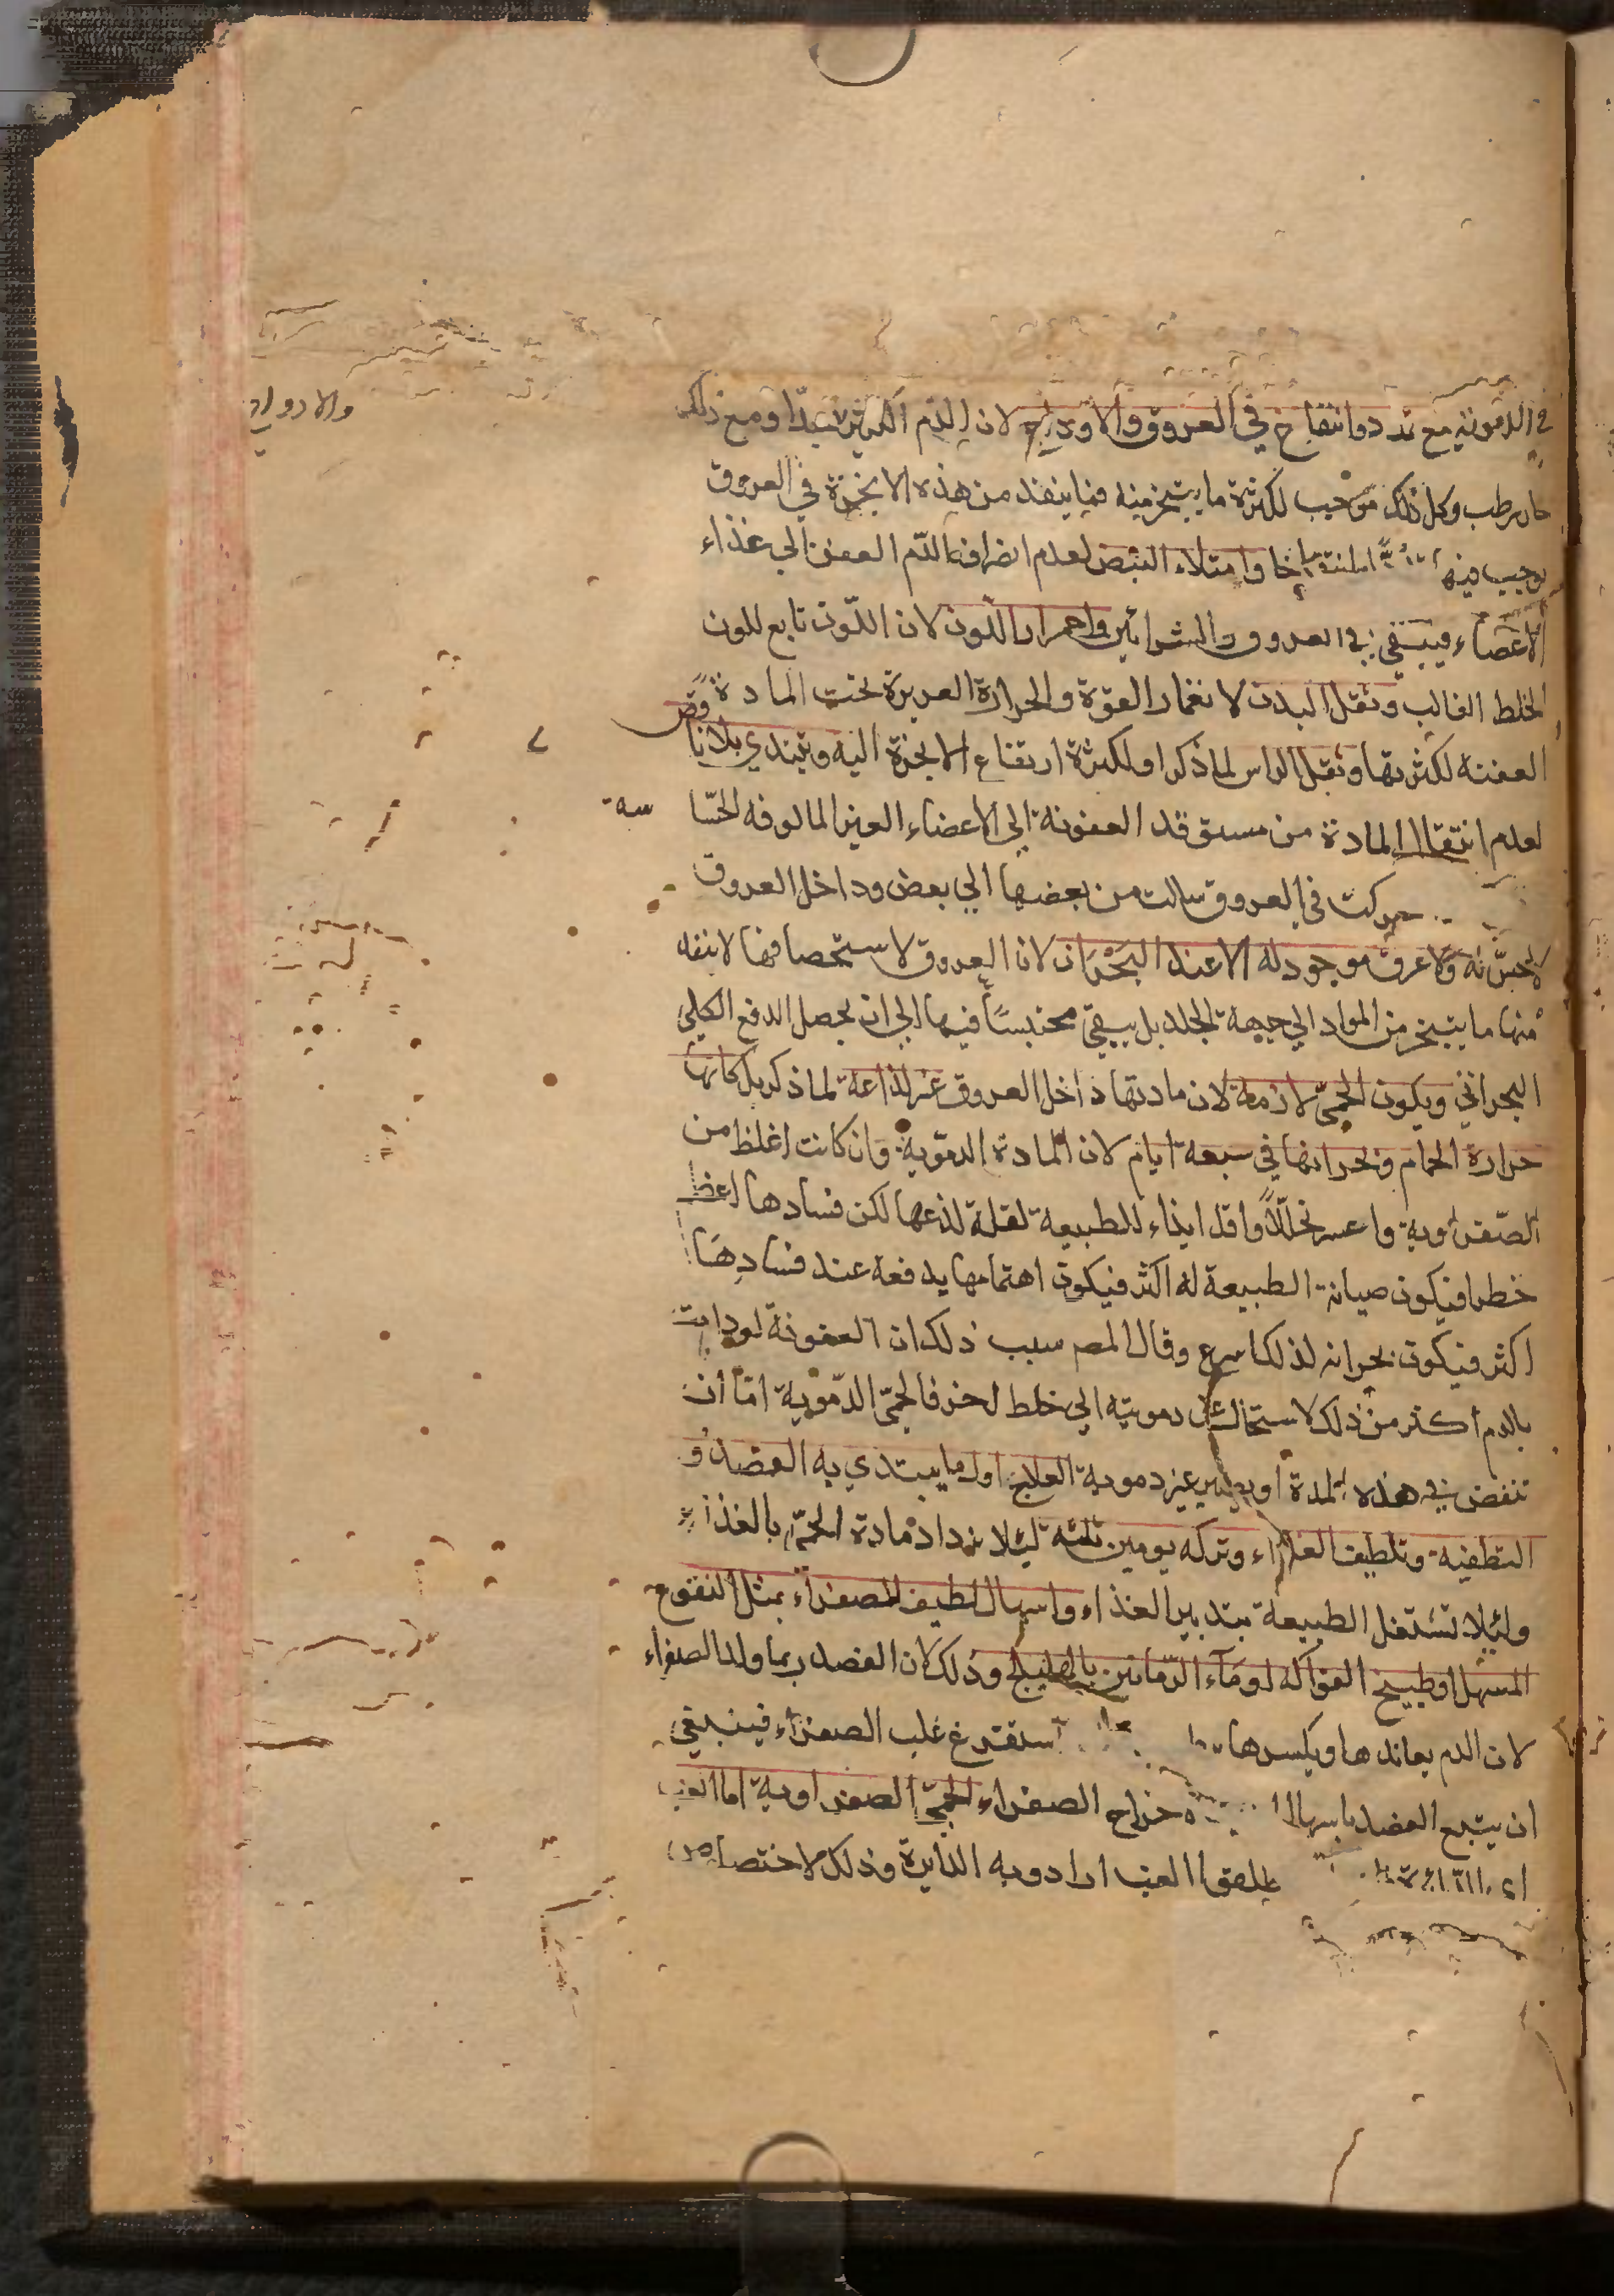 في الدموية مع تمدد وانتفاخ في العروق والاوداج لان الدم اكثر ومع ذلك
حار رطب وكل ذلك موجب لكثرة ما يتبخر منه فما ينفذ من هذه الابخرة في العروق
يوجب فيها وامتلاء النبض لعدم انصراف الدم العفن الي غذاء
الاعضاء فيبقي في العروق والشرائين واحمرار اللون لان اللون تابع للون
الخلط الغالب وثقل البدن لانغمار القوة والحرارة الغريزة تحت المادة
العفنة لكثرتها وثقل الراس لما ذكر او لكثرة ارتفاع الابخرة اليه ويبتدي بلا نافض
لعدم انتقال المادة من مستوقد العفونة الي الاعضاء الغير المالوفه الحسّاسة
حركت في العروق سالت من بعضها الي بعض وداخل العروق
لا حسّ له ولا عرق موجود له الا عند البحران لان العروق لاستحصافها لا ينفذ
منها ما يتبخر من المواد الي جهة الجلد بل يبقي محتبسًا فيها الي ان يحصل الدفع الكلي
البحراني ويكون الحمّي لازمة لان مادتها داخل العروق غير لذاعة لما ذكر بل كانها
حرارة الحمام وبحرانها في سبعة ايام لان المادة الدموية وان كانت اغلظ من
الصفراوية واعسر تحلّلاً واقل ايذاء للطبيعة لقلة لذعها لكن فسادها اعظم
خطرا فيكون صيانة الطبيعة له اكثر فيكون اهتمامها بدفعه عند فسادها
اكثر فيكون بحرانه لذلك اسرع وقال المص سبب ذلك ان العفونة لو دامت
بالدم اكثر من ذلك لاستحال عن دمويته الي خلط اخر فالحمّي الدّموية امّا ان
تنقض في هذه المدة او يصير غير دموية العلاج اول ما يبتدي به الفصد و
التطفية وتلطيف الغذاء وتركه يومين ثلثه ليلا تزداد مادة الحمّي بالغذاء
ولئلا تشتغل الطبيعة بتدبير الغذاء واسهال لطيف للصفراء بمثل النقوع
المسهل او طبيخ الفواكه او ماء الرّمانين بالهليلج وذلك لان الفصد ربما ولد الصفراء
لان الدم يعاندها ويكسرها استفرغ غلب الصفراء فينبغي
ان يتبع الفصد باسهال لاخراج الصفراء الحمّي الصفراوية اما الغب
مطلق الغب ارادو به الدايرة وذلك لاختصاص
والادوار